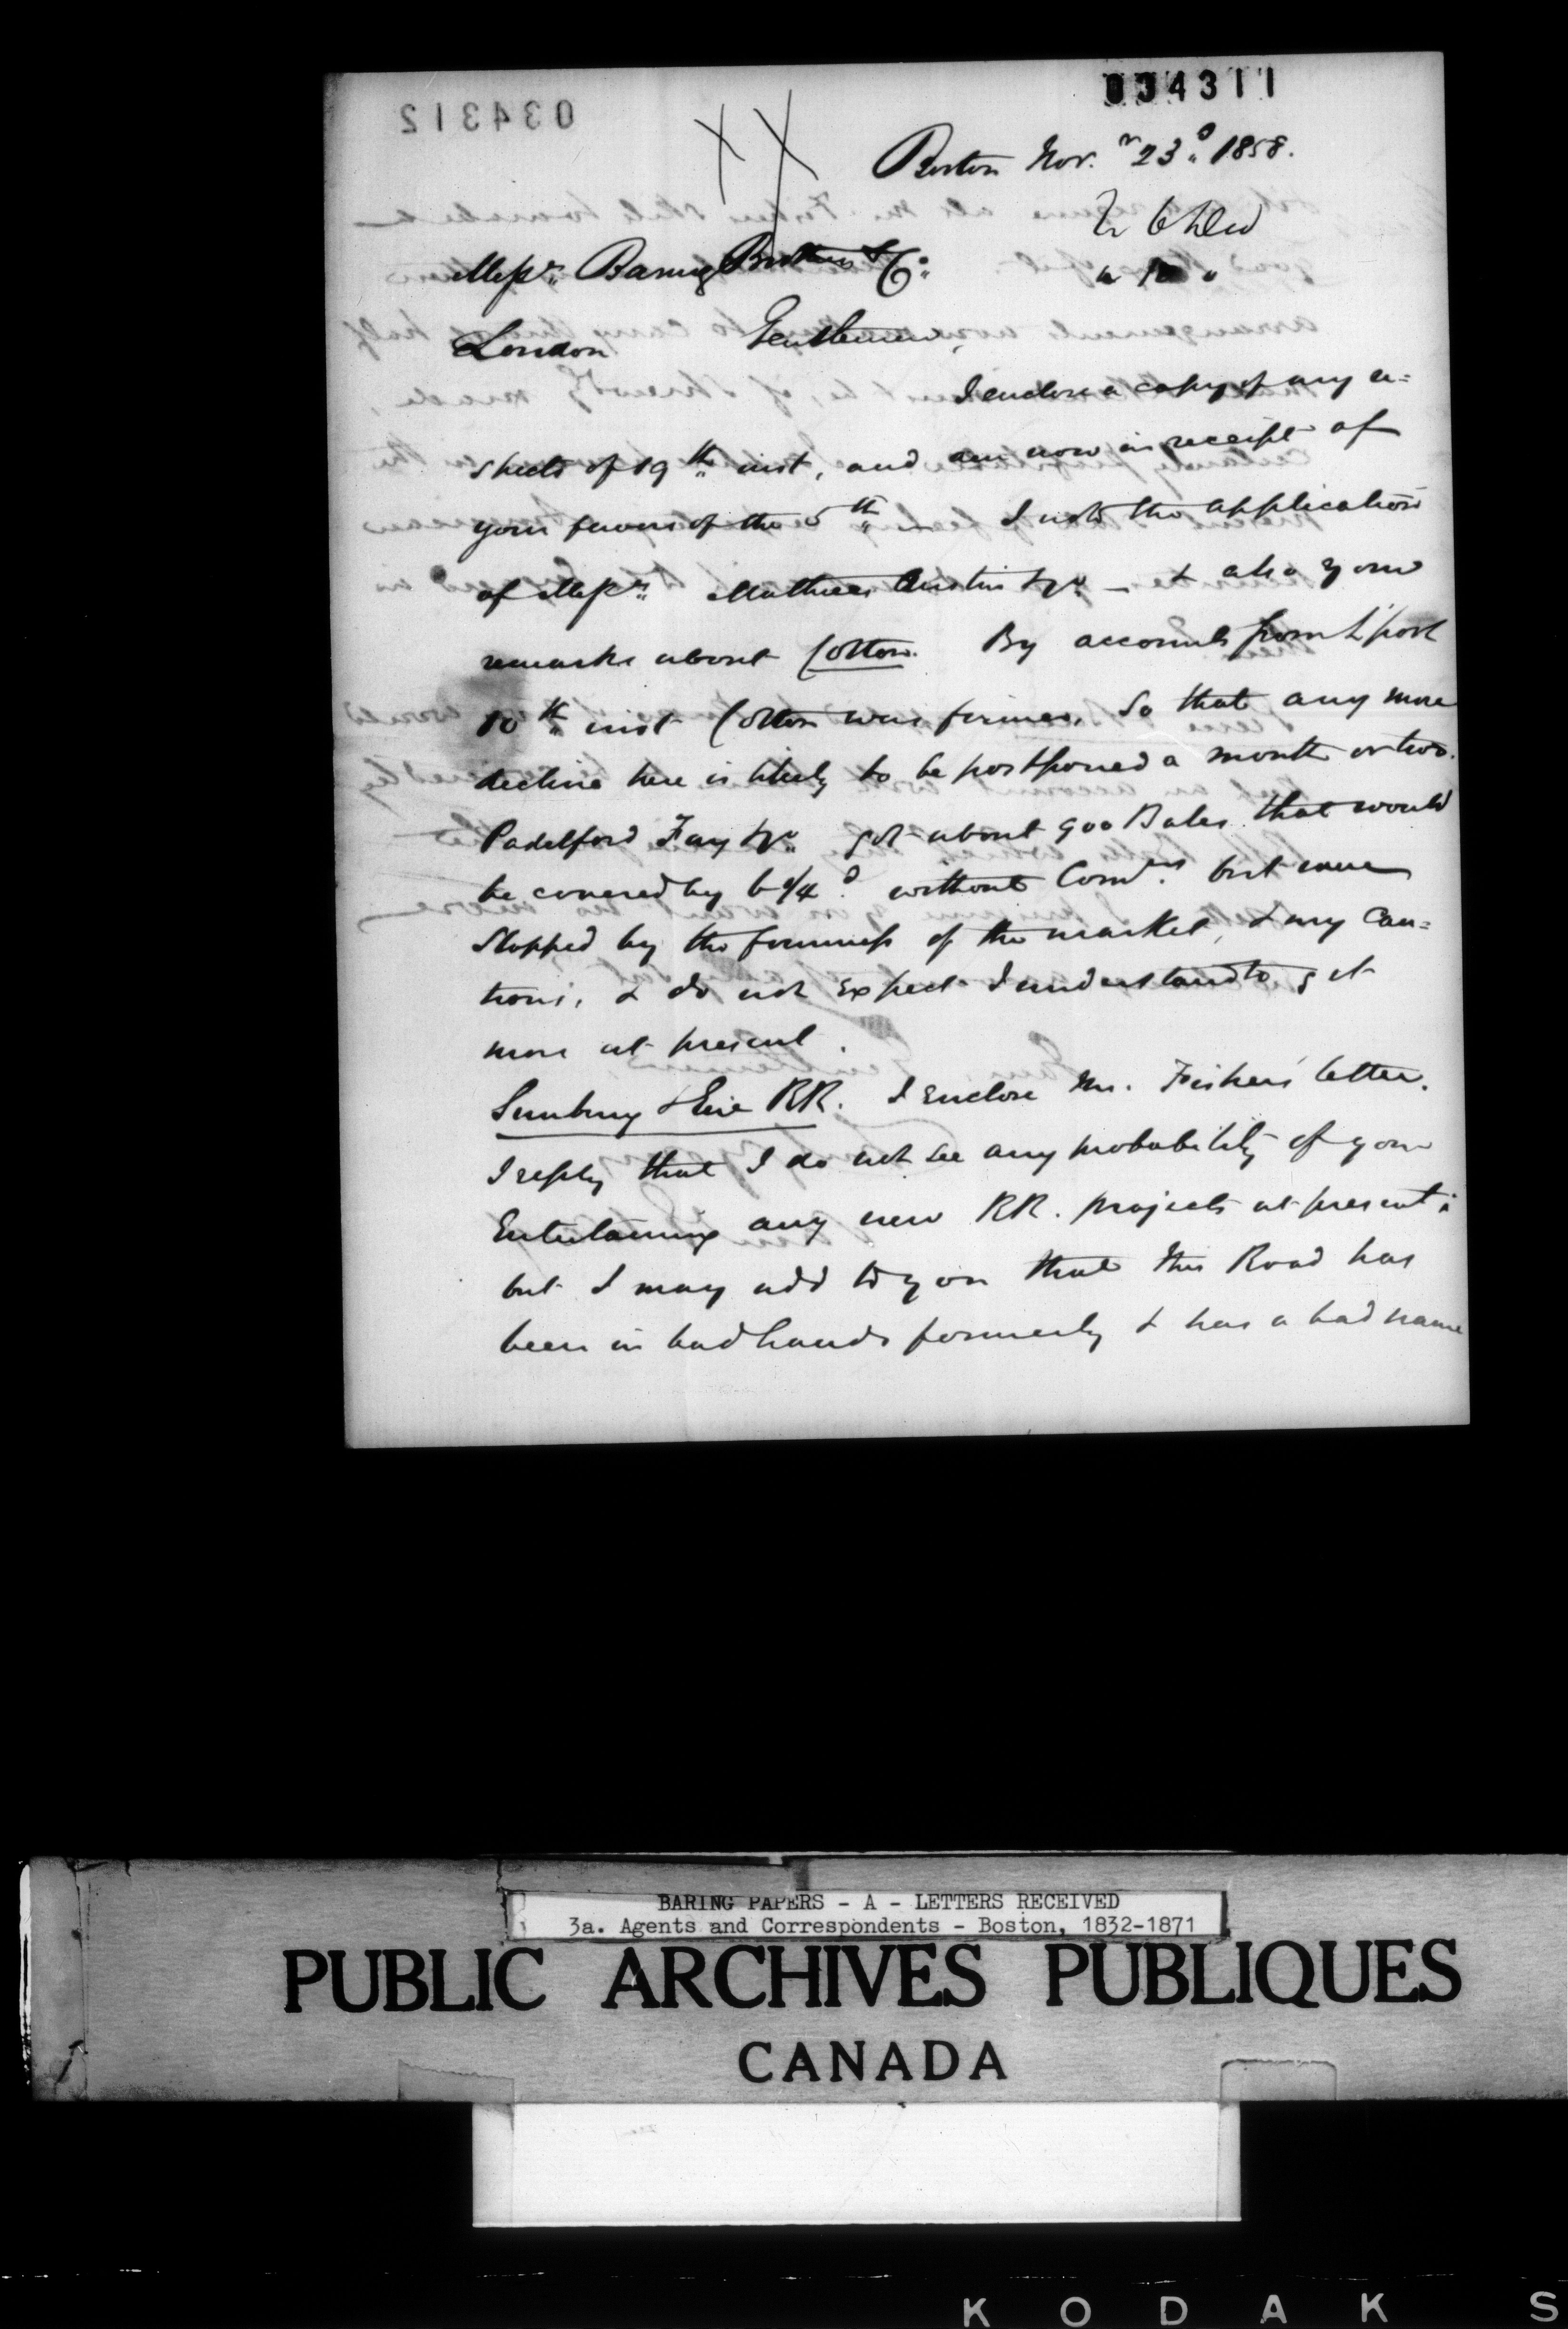 034311
034312
Boston Nov.r 23d 1858.
Messrs. Baring Brothers & Co.
London Gentlemen,
I enclose a copy of my re=
spects of 19th inst, and am now in receipt of
your favors of the 5th — I note the application
of Messrs. Mathews Austin & Co. — & also your
remarks about Cotton. By accounts from L'pool
10th inst Cotton was firmer, so that any more
decline here is likely to be postponed a month or two.
Padelford Fay & Co. got about 900 Bales that would
be covered by 6 1/4d. without Comn. but were
stopped by the firmness of the market, & my cau=
tions, & do not expect I understand to get
more at present.
Sunbury & Erie RR. I enclose Mr. Fisher's letter.
I reply that I do not see any probability of your
Entertaining any new RR. projects at present;
but I may add to you that this Road has
been in bad hands formerly & has a bad name
BARING PAPERS - A - LETTERS RECEIVED
3a. Agents and Correspondents - Boston, 1832-1871
PUBLIC ARCHIVES PUBLIQUES
CANADA
KODAK S